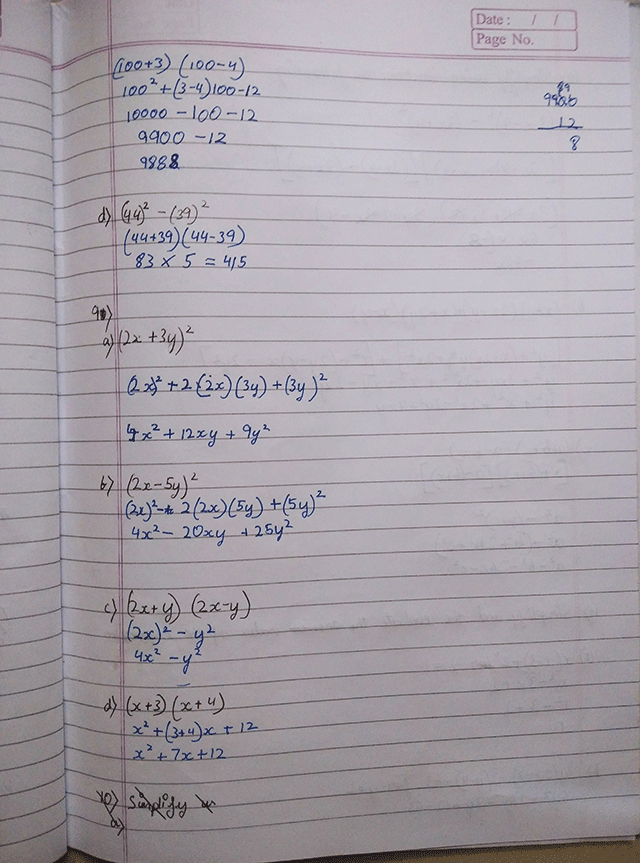 Date : / /
Page No.
(100+3) (100-4)
100² + (3-4)100-12
10000 - 100 - 12
9900 - 12
9888
89
9900
12
8
d) (44)² - (39)²
(44+39)(44-39)
83 × 5 = 415
9)
a) (2x + 3y)²
(2x)² + 2(2x)(3y) + (3y)²
4x² + 12xy + 9y²
b) (2x - 5y)²
(2x)² - 2(2x)(5y) + (5y)²
4x² - 20xy + 25y²
c) (2x+y) (2x-y)
(2x)² - y²
4x² - y²
d) (x+3) (x+4)
x² + (3+4)x + 12
x² + 7x + 12
10) Simplify
a)